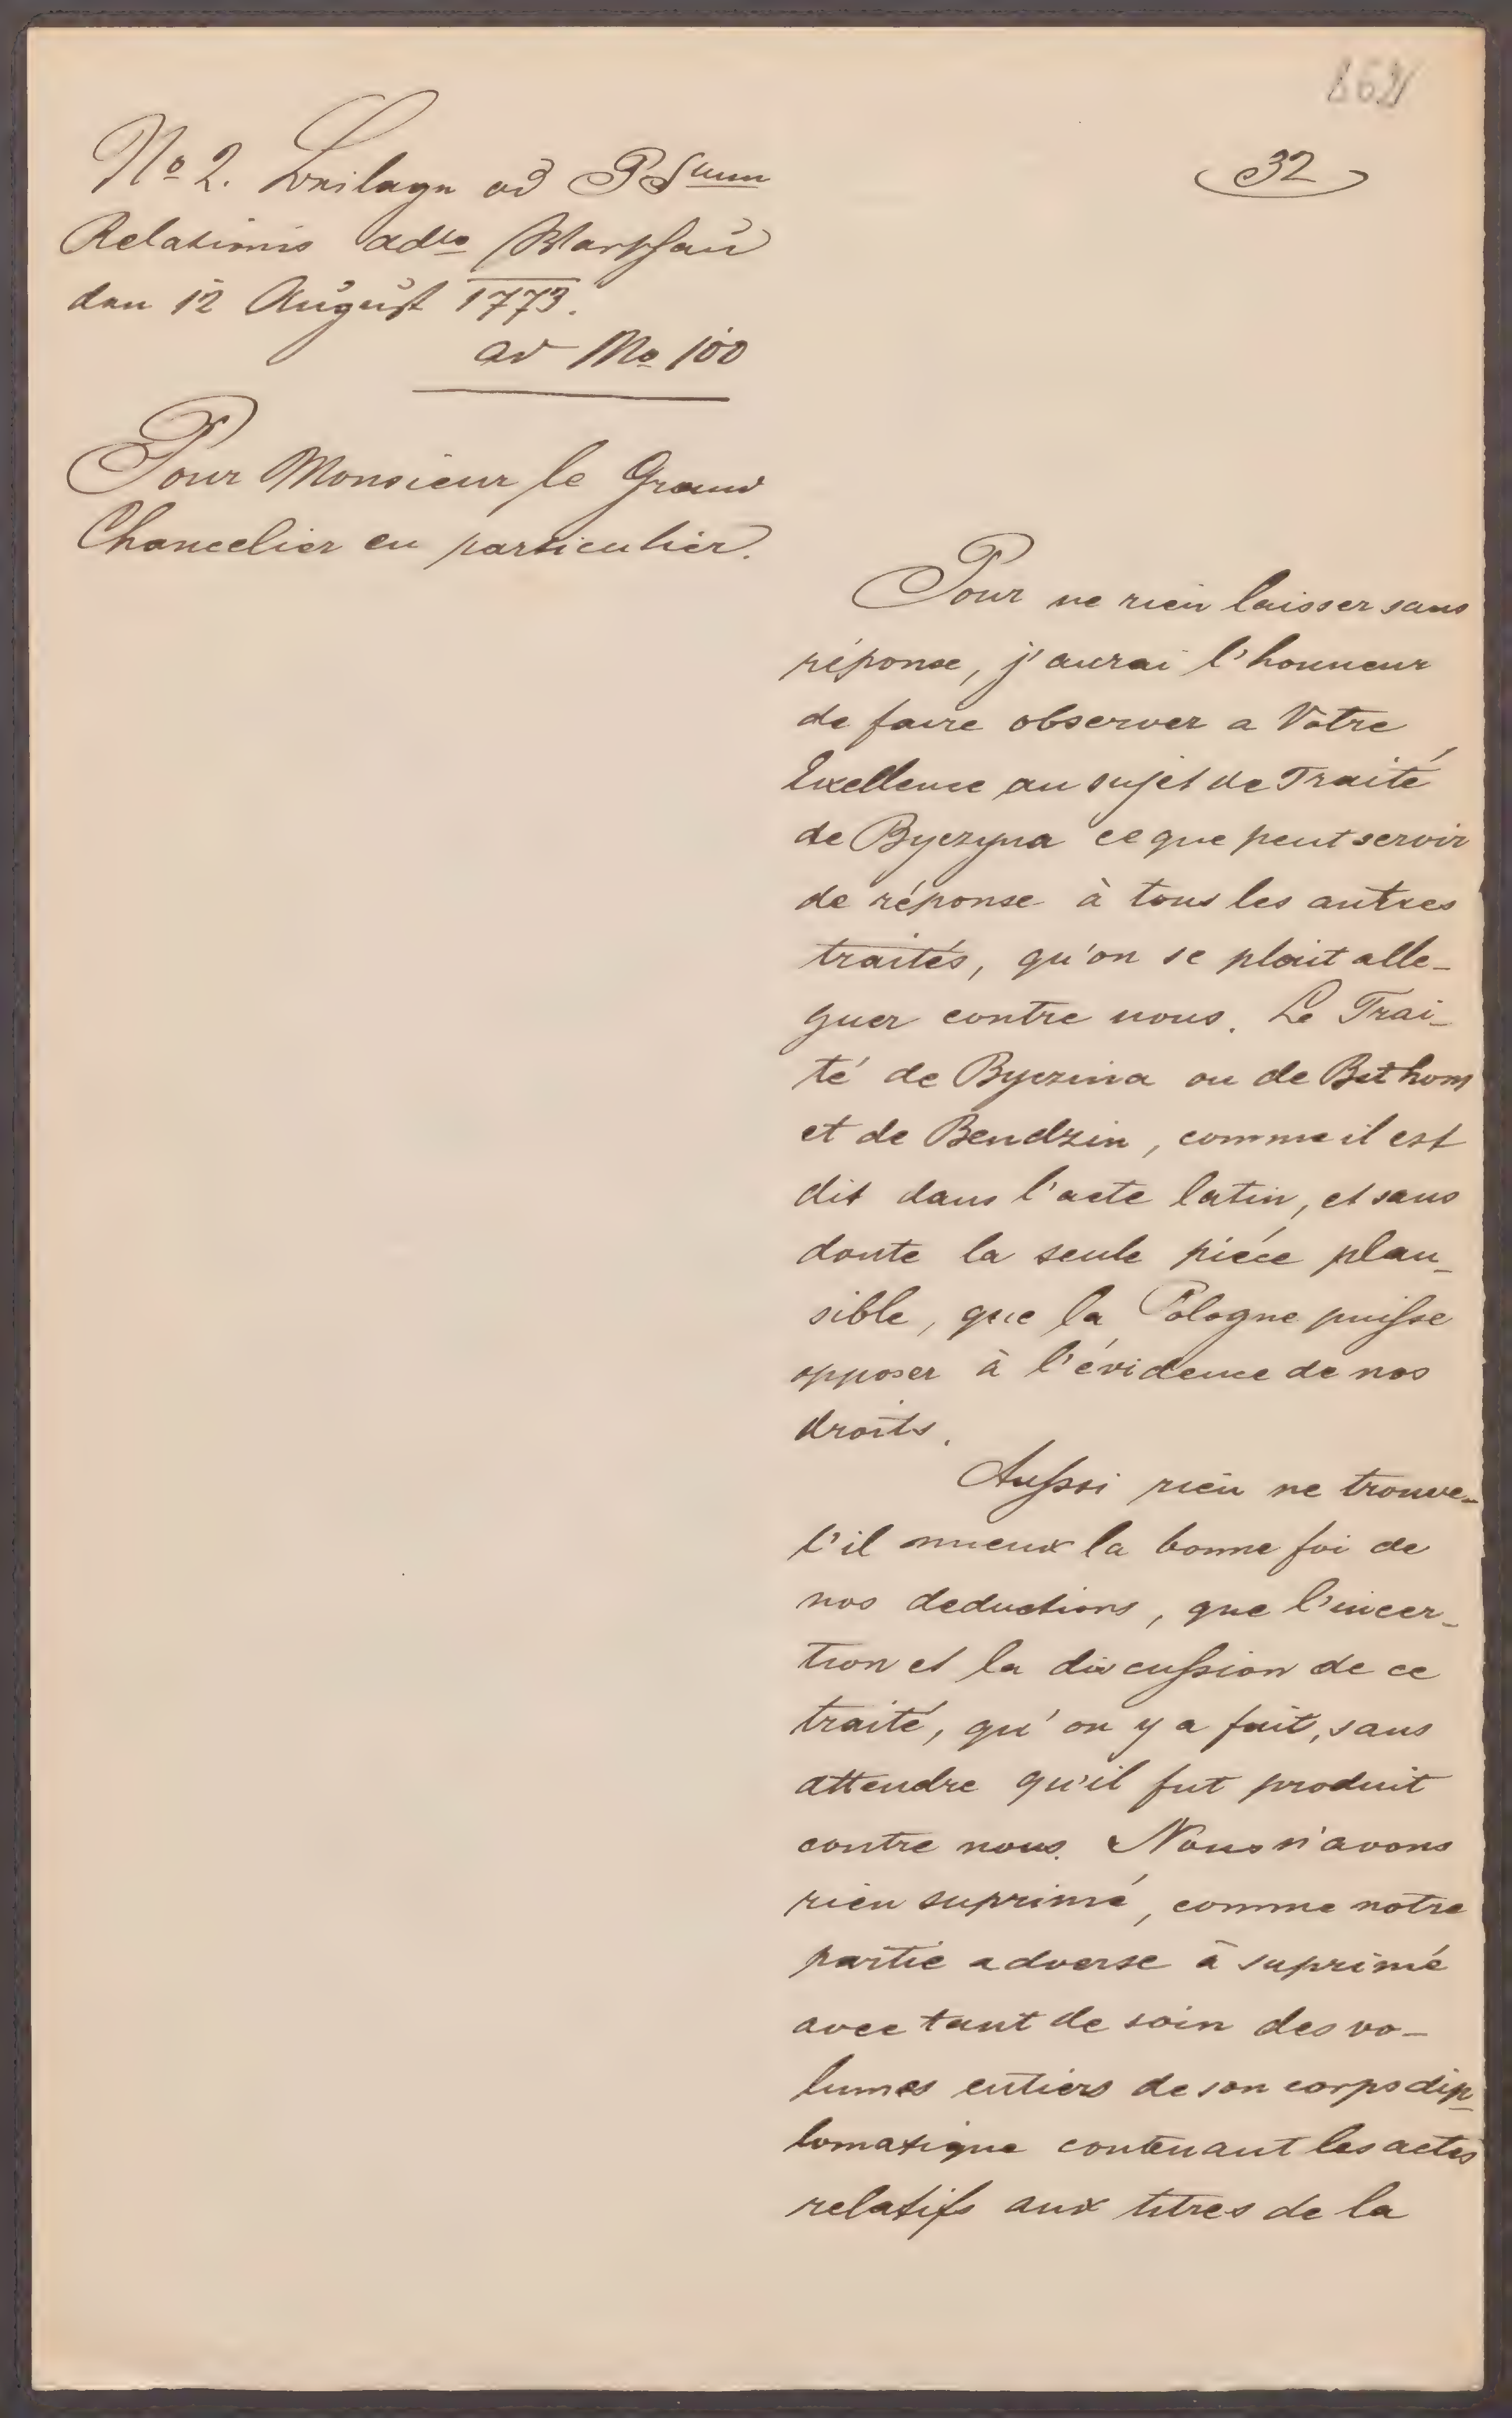 32
No 2. Beilage ad PSum
Relationis ddto Warschau
den 12 August 1773.
ad No 100
Pour Monsieur le Grand
Chancelier en particulier.
Pour ne rien laisser sans
réponse, j'aurai l'honneur
de faire observer a Votre
Exellence au sujet de Traité
de Byczyna ce que peut servir
de réponse à tous les autres
traités, qu'on se plait alle-
guer contre nous. Le Trai-
té de Byczina ou de Bithom
et de Bendzin, comme il est
dit dans l'acte latin, et sans
doute la seule piéce plau-
sible, que la Pologne puisse
opposer à l'évidence de nos
droits.
Aussi rien ne trouve-
t'il mieux la bonne foi de
nos deductions, que l'incer-
tion et la discussion de ce
traité, qu'on y a fait, sans
attendre qu'il fut produit
contre nous. Nous n'avons
rien suprimé, comme notre
partie adverse à suprimé
avec tant de soin des vo-
lumes entiers de son corps dip-
lomatique contenant les actes
relatifs aux titres de la